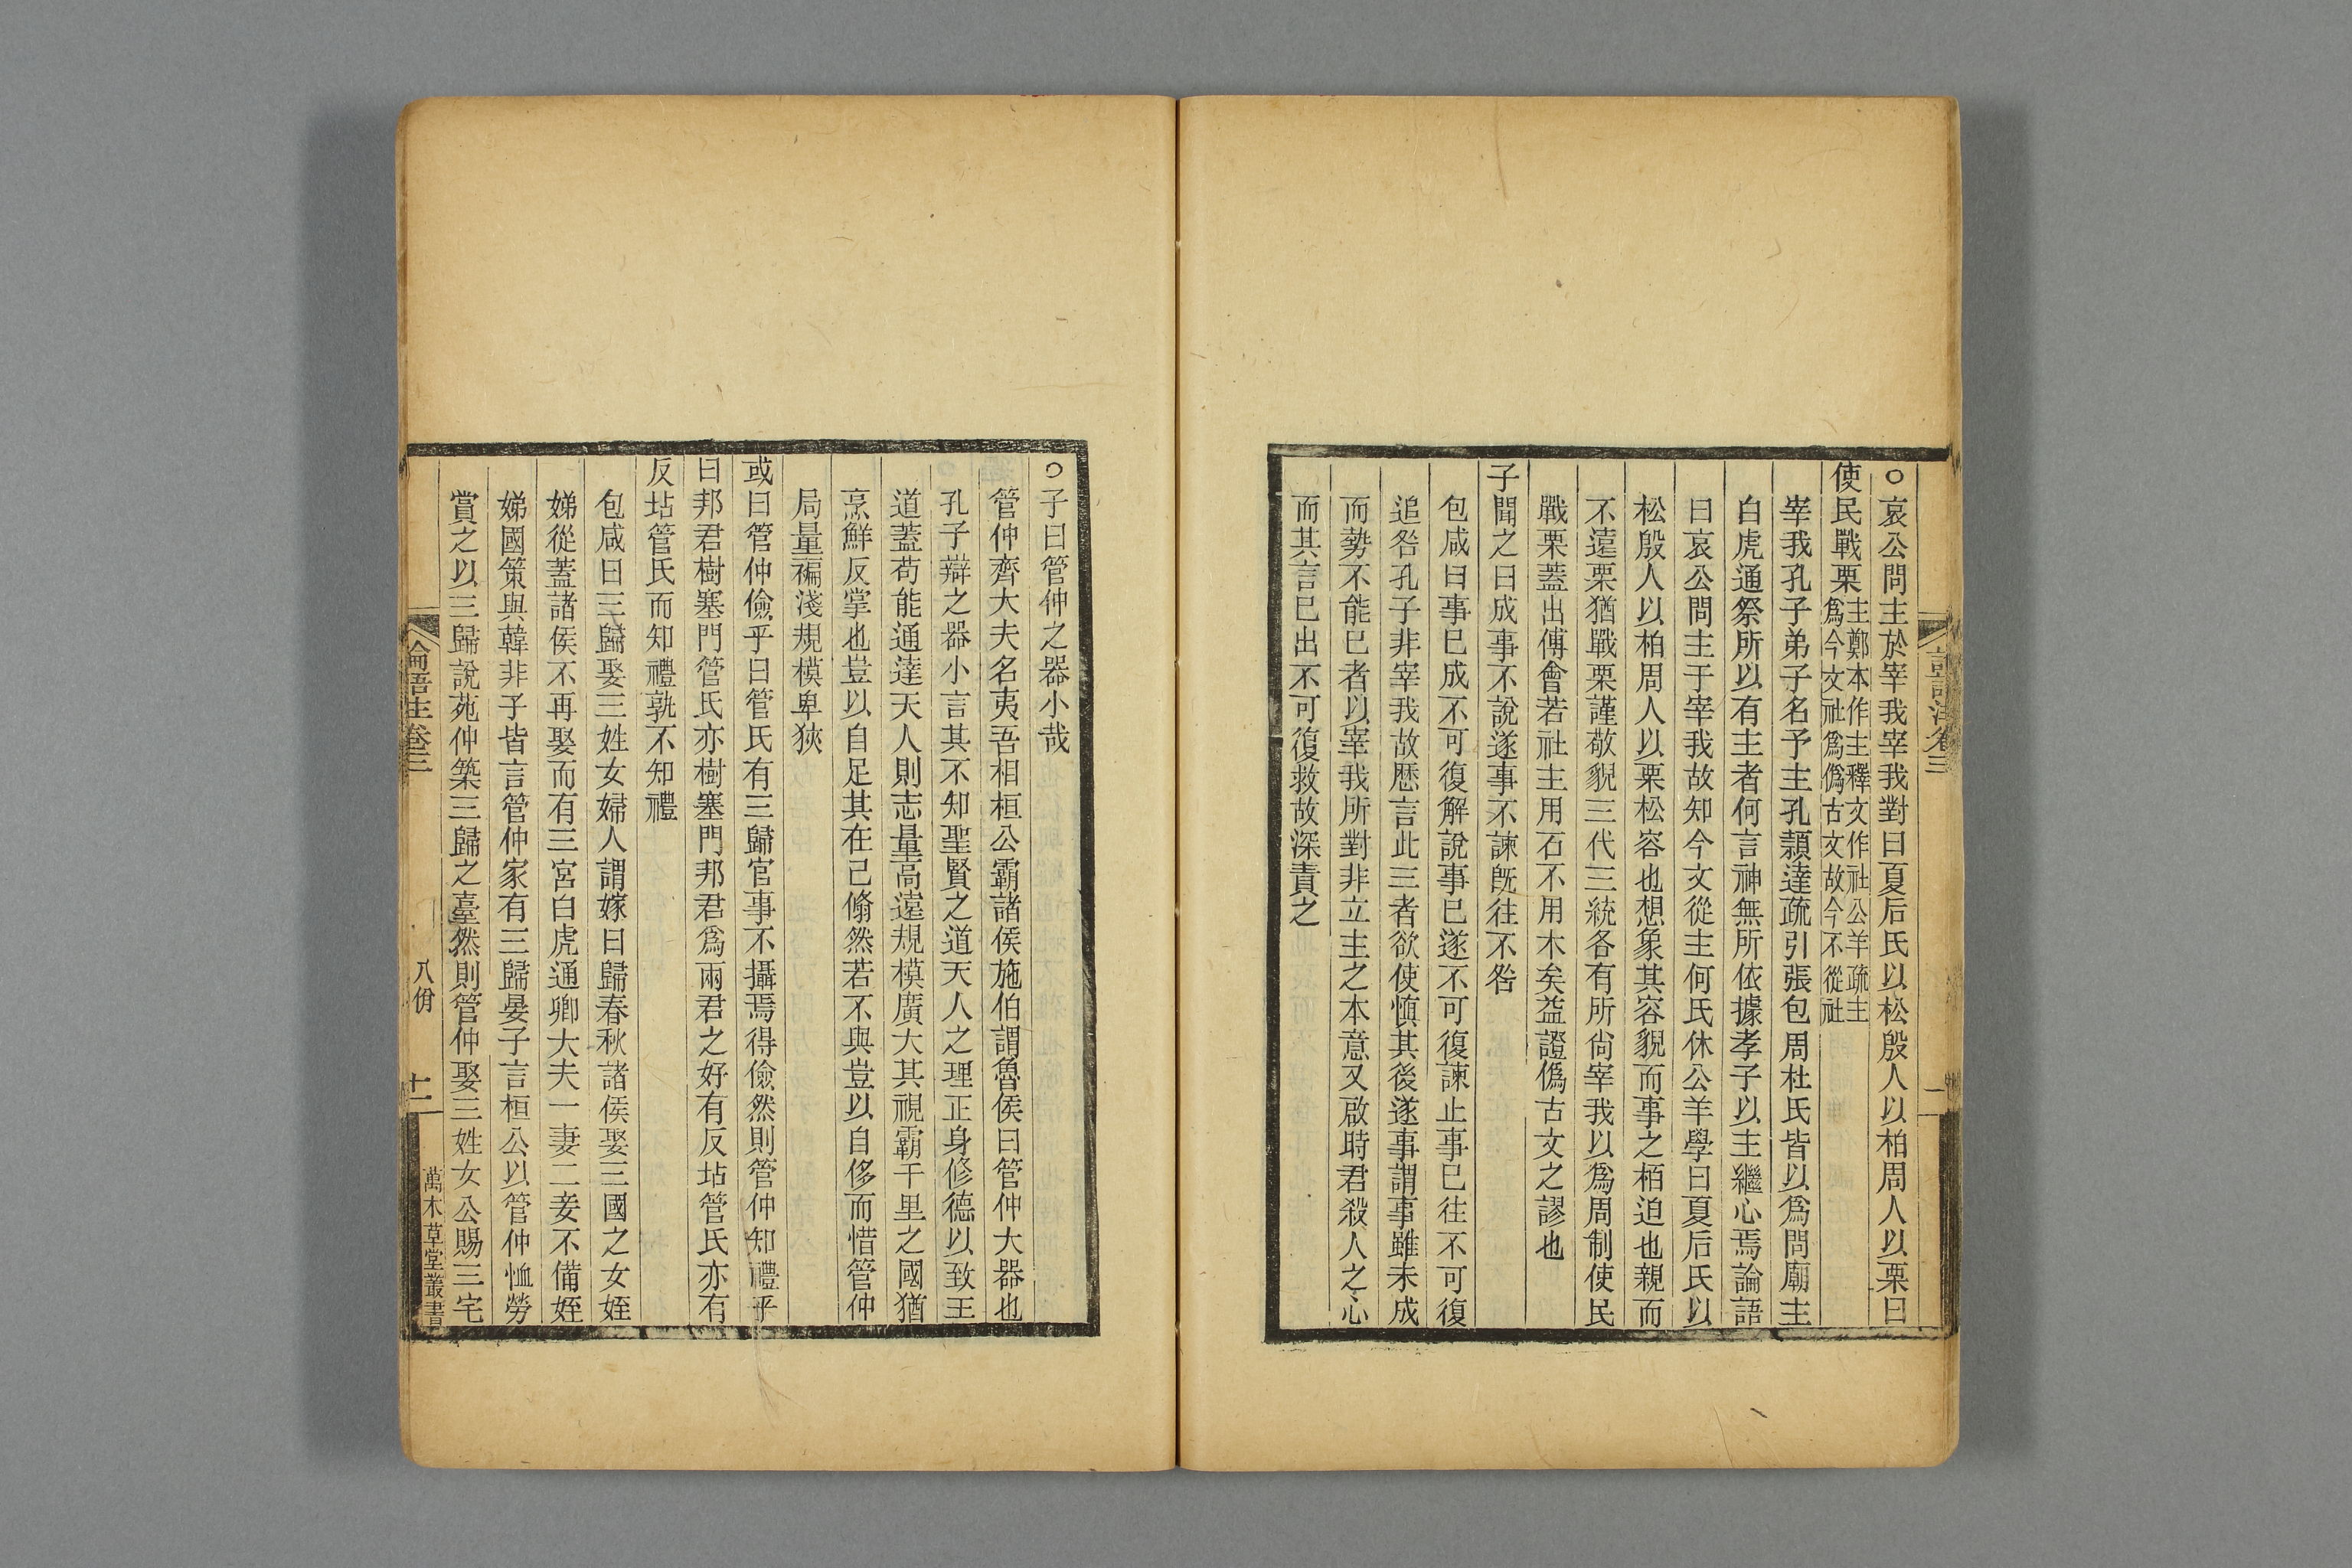 ○哀公問主於宰我宰我對曰夏后氏以松殷人以柏周人以栗曰
使民戰栗主鄭本作主釋文作社公羊疏主
爲今文社爲僞古文故今不從社
宰我孔子弟子名予主孔穎達疏引張包周杜氏皆以爲問廟主
白虎通祭所以有主者何言神無所依據孝子以主繼心焉論語
曰哀公問主于宰我故知今文從主何氏休公羊學曰夏后氏以
松殷人以柏周人以栗松容也想象其容貌而事之栢迫也親而
不遠栗猶戰栗謹敬貌三代三統各有所尚宰我以爲周制使民
戰栗蓋出傅會若社主用石不用木矣益證僞古文之謬也
子聞之曰成事不說遂事不諫旣往不咎
包咸曰事已成不可復解說事已遂不可復諫止事已往不可復
追咎孔子非宰我故歷言此三者欲使慎其後遂事謂事雖未成
而勢不能已者以宰我所對非立主之本意又啟時君殺人之心
而其言已出不可復救故深責之
○子曰管仲之器小哉
管仲齊大夫名夷吾相桓公霸諸侯施伯謂魯侯曰管仲大器也
孔子辯之器小言其不知聖賢之道天人之理正身修德以致王
道蓋苟能通達天人則志量高遠規模廣大其視霸千里之國猶
烹鮮反掌也豈以自足其在己翛然若不與豈以自侈而惜管仲
局量褊淺規模卑狹
或曰管仲儉乎曰管氏有三歸官事不攝焉得儉然則管仲知禮乎
曰邦君樹塞門管氏亦樹塞門邦君爲兩君之好有反坫管氏亦有
反坫管氏而知禮孰不知禮
包咸曰三歸娶三姓女婦人謂嫁曰歸春秋諸侯娶三國之女姪
娣從蓋諸侯不再娶而有三宮白虎通卿大夫一妻二妾不備姪
娣國策與韓非子皆言管仲家有三歸晏子言桓公以管仲恤勞
賞之以三歸說苑仲築三歸之臺然則管仲娶三姓女公賜三宅
論語注卷三
八佾
十一
萬木草堂叢書